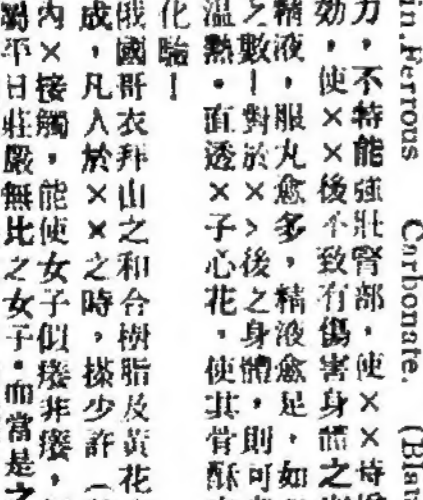 in.Ferrous Carbonate. (Bla
力，不特能強壯腎部，使××時
効，使×××後不致有傷害身體之
精液，服丸愈多，精液愈足，如
之數！對於××後之身體，則可
溫熱。直透×子心花，使其骨酥
化驗！
俄國哥衣拜山之和合樹脂及黃花
成，凡入於××之時，搽少許（
內×接觸，能使女子似癢非癢，
平日莊嚴無比之女子。而當是之